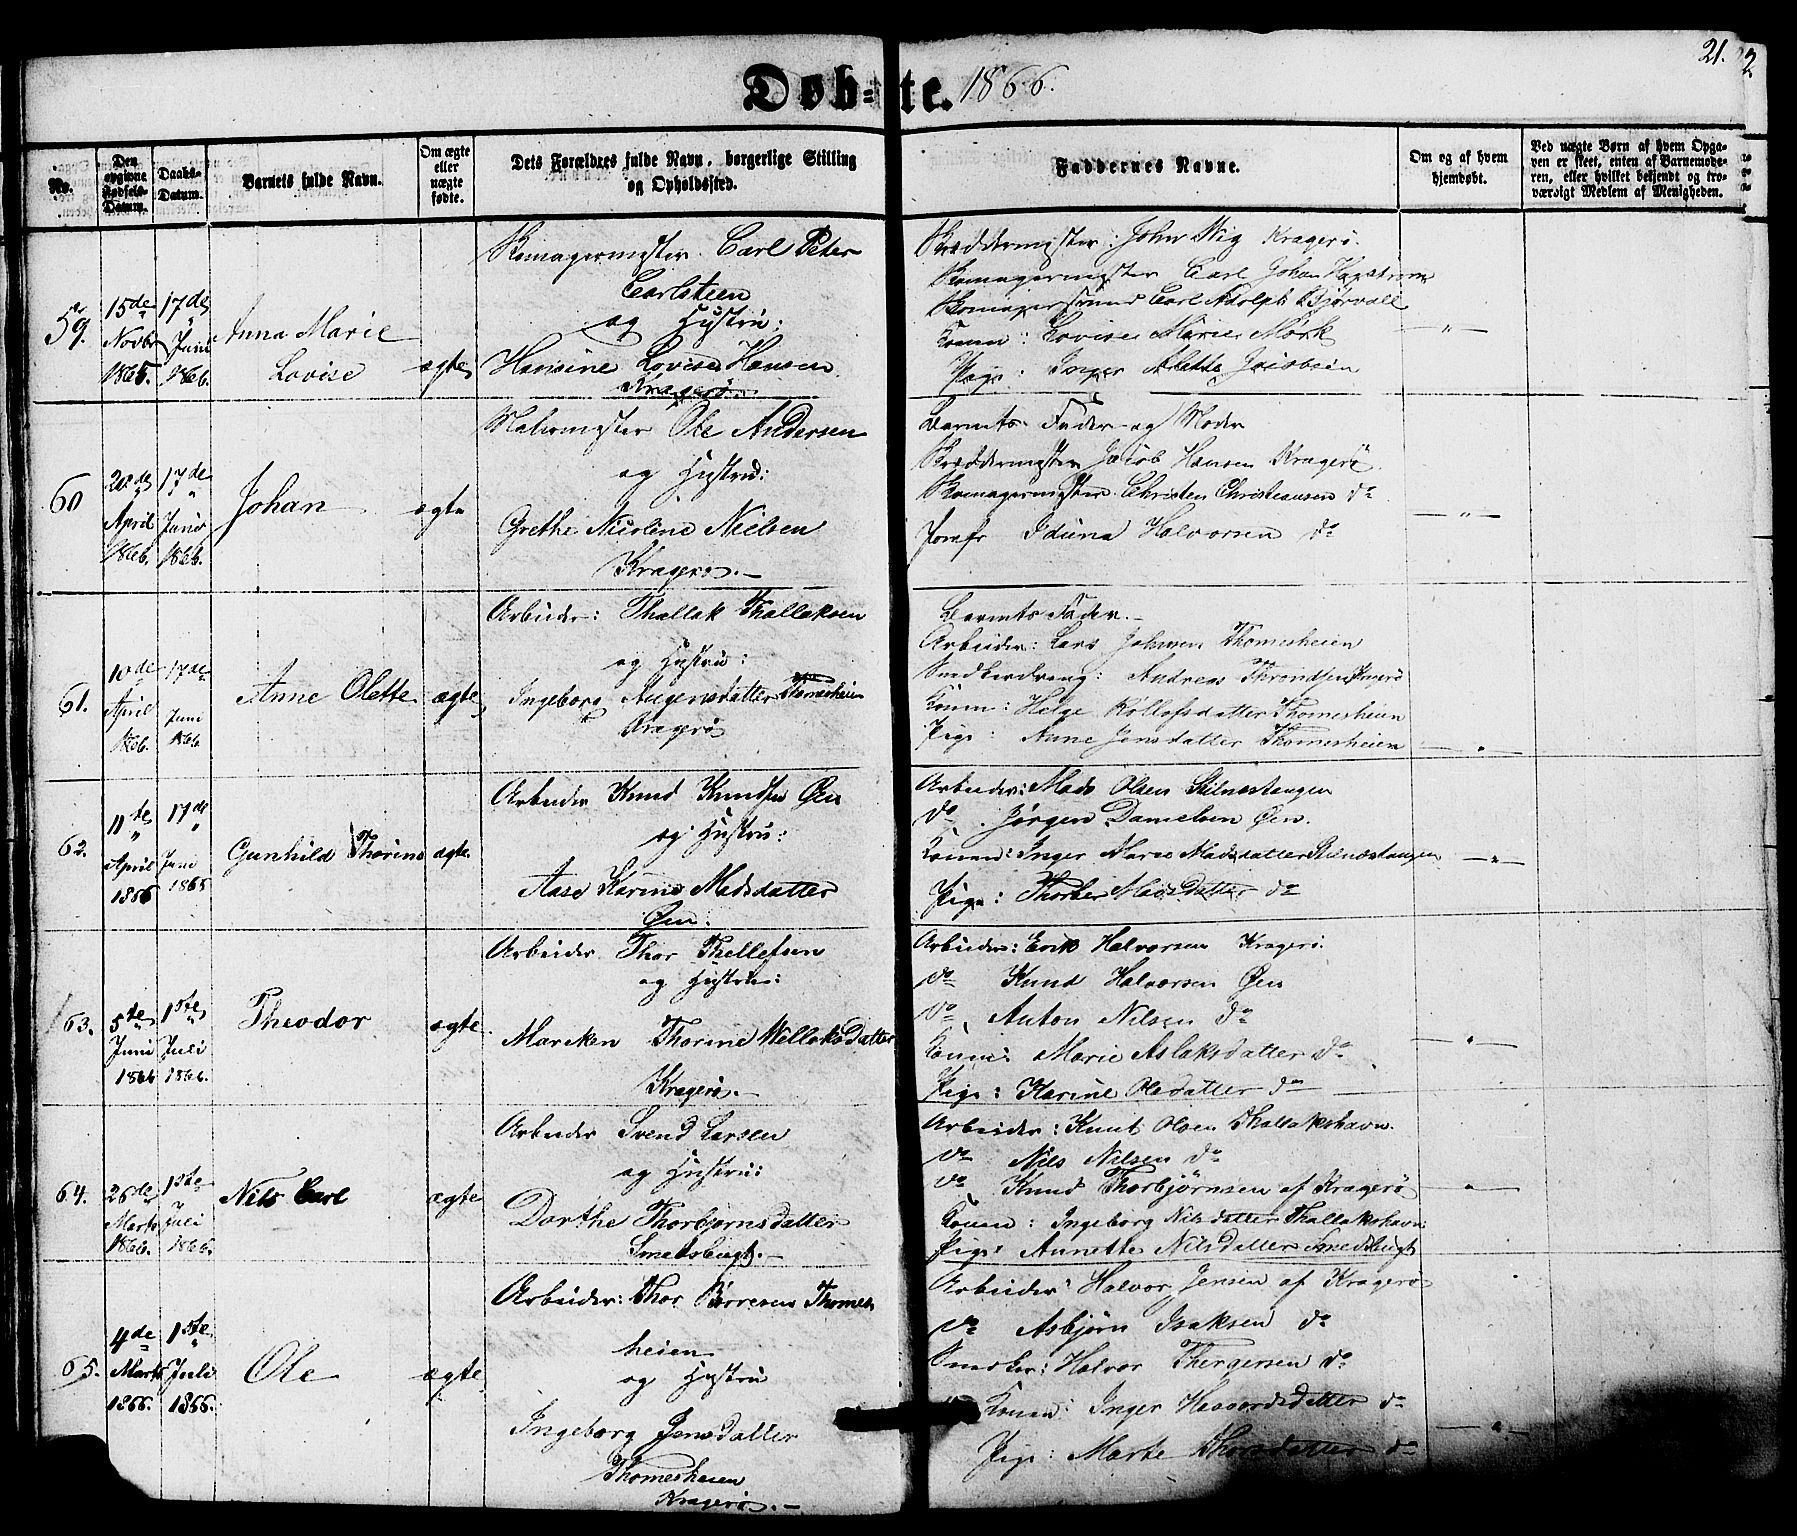 Døb-te. 1866.
21.
No.
Den opgivne Fødsels-Datum.
Daabs-Datum.
Barnets fulde Navn.
Om ægte eller uægte fødte.
Dets Forældres fulde Navn, borgerlige Stilling
og Opholdssted.
Faddernes Navne.
Om og af hvem
hjemdøbt.
Ved uægte Børn af hvem Opga-
ven er skeet, enten af Barnemode-
ren, eller hvilket bekjendt og tro-
værdigt Medlem af Menigheden.
59.
15de Novbr 1865.
17de Juni 1866.
Anna Marie
Lovise
ægte
Skomagermester Carl Peter
Carlsteen
og Hustru:
Hansine Lovise Hansen
Kragerø.
Skræddermester: John Stig Kragerø.
Skomagermester Carl Johan Hagstrøm
Carl Adolph Bjørvall
Konen: Lovise Marie Mørk
Pige: Inger Alette Jacobsen
— " —
60
20de April 1866.
17de Juni 1866.
Johan
ægte
Malermester Ole Andersen
og Hustru:
Grethe Nicoline Nielsen
Kragerø. —
Barnets Fader og Moder
Skræddermester Jacob Hansen Kragerø.
Skomagermester Christen Christiansen do
Jomfr Iduna Halvorsen do
— " —
61.
10de April 1866.
17de Juni 1866
Anne Olette
ægte
Arbeider: Thallak Thallaksen
og Hustru:
Ingeborg Aagensdatter Thomesheien
Kragerø
Barnets Fader. —
Arbeider: Lars Johnsen Thomesheien
Smededreng: Andreas Throndsen
Konen: Helge Rollofsdatter Thomesheien
Pige: Anne Jensdatter Thomesheien
— " —
62.
11de April 1866
17de Juni 1865
Gunhild Thorine
ægte.
Arbeider Knud Knudsen Øen
og Hustru:
Aase Karine Madsdatter
Øen.
Arbeider: Mads Olsen Stilnestangen
do. Jørgen Danielsen Øen.
Konen: Inger Marie Madsdatter Stilnestangen
Pige: Thorber Madsdatter do
— " —
63.
5te Juni 1866
1ste Juli 1866.
Theodor
ægte.
Arbeider Thor Thellefsen
og Hustru:
Mareken Thorine Wellaksdatter
Kragerø. —
Arbeider: Erik Halvorsen Kragerø.
do Knud Halvorsen Øen
do Anton Nilsen do
Konen: Marie Aslaksdatter do
Pige: Karine Olsdatter do
— " —
64.
26de Marts 1866.
1ste Juli 1866.
Nils Carl
ægte
Arbeider Svend Larsen
og Hustru:
Dorthe Thorbjørnsdatter
Smedsbugt. —
Arbeider: Knut Olsen Thallakshavn.
do Nils Nilsen do
do Knud Thorbjørnsen af Kragerø
Konen: Ingeborg Nilsdatter Thallakshavn
Pige: Annette Nilsdatter Smedsbugt
— " —
65.
4de Marts 1866.
1ste Juli 1866.
Ole
ægte
Arbeider: Thor Børresen Thomes
heien
og Hustru
Ingeborg Jensdatter
Thomesheien
Kragerø. —
Arbeider: Halvor Jensen af Kragerø
do Asbjørn Isaksen do
Halvor Thergersen do
Konen: Inger Haavordsdatter do
Pige: Marte Thorsdatter do
— " —